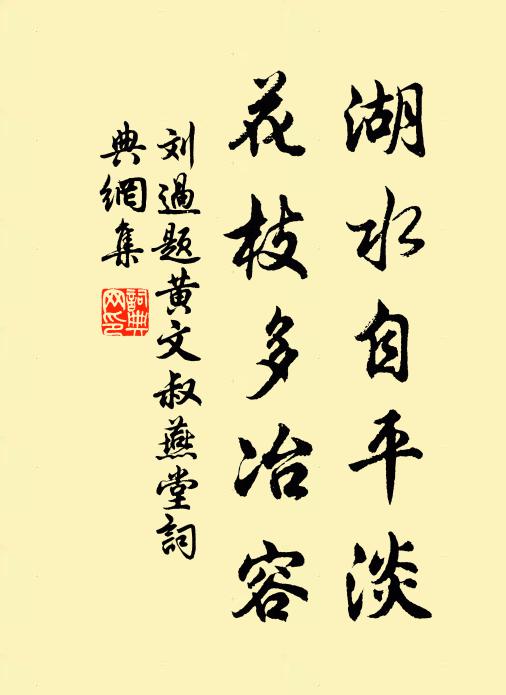 湖水自平淡
花枝多冶容
刘過题黄文叔燕堂詞
典網集
詞典网印